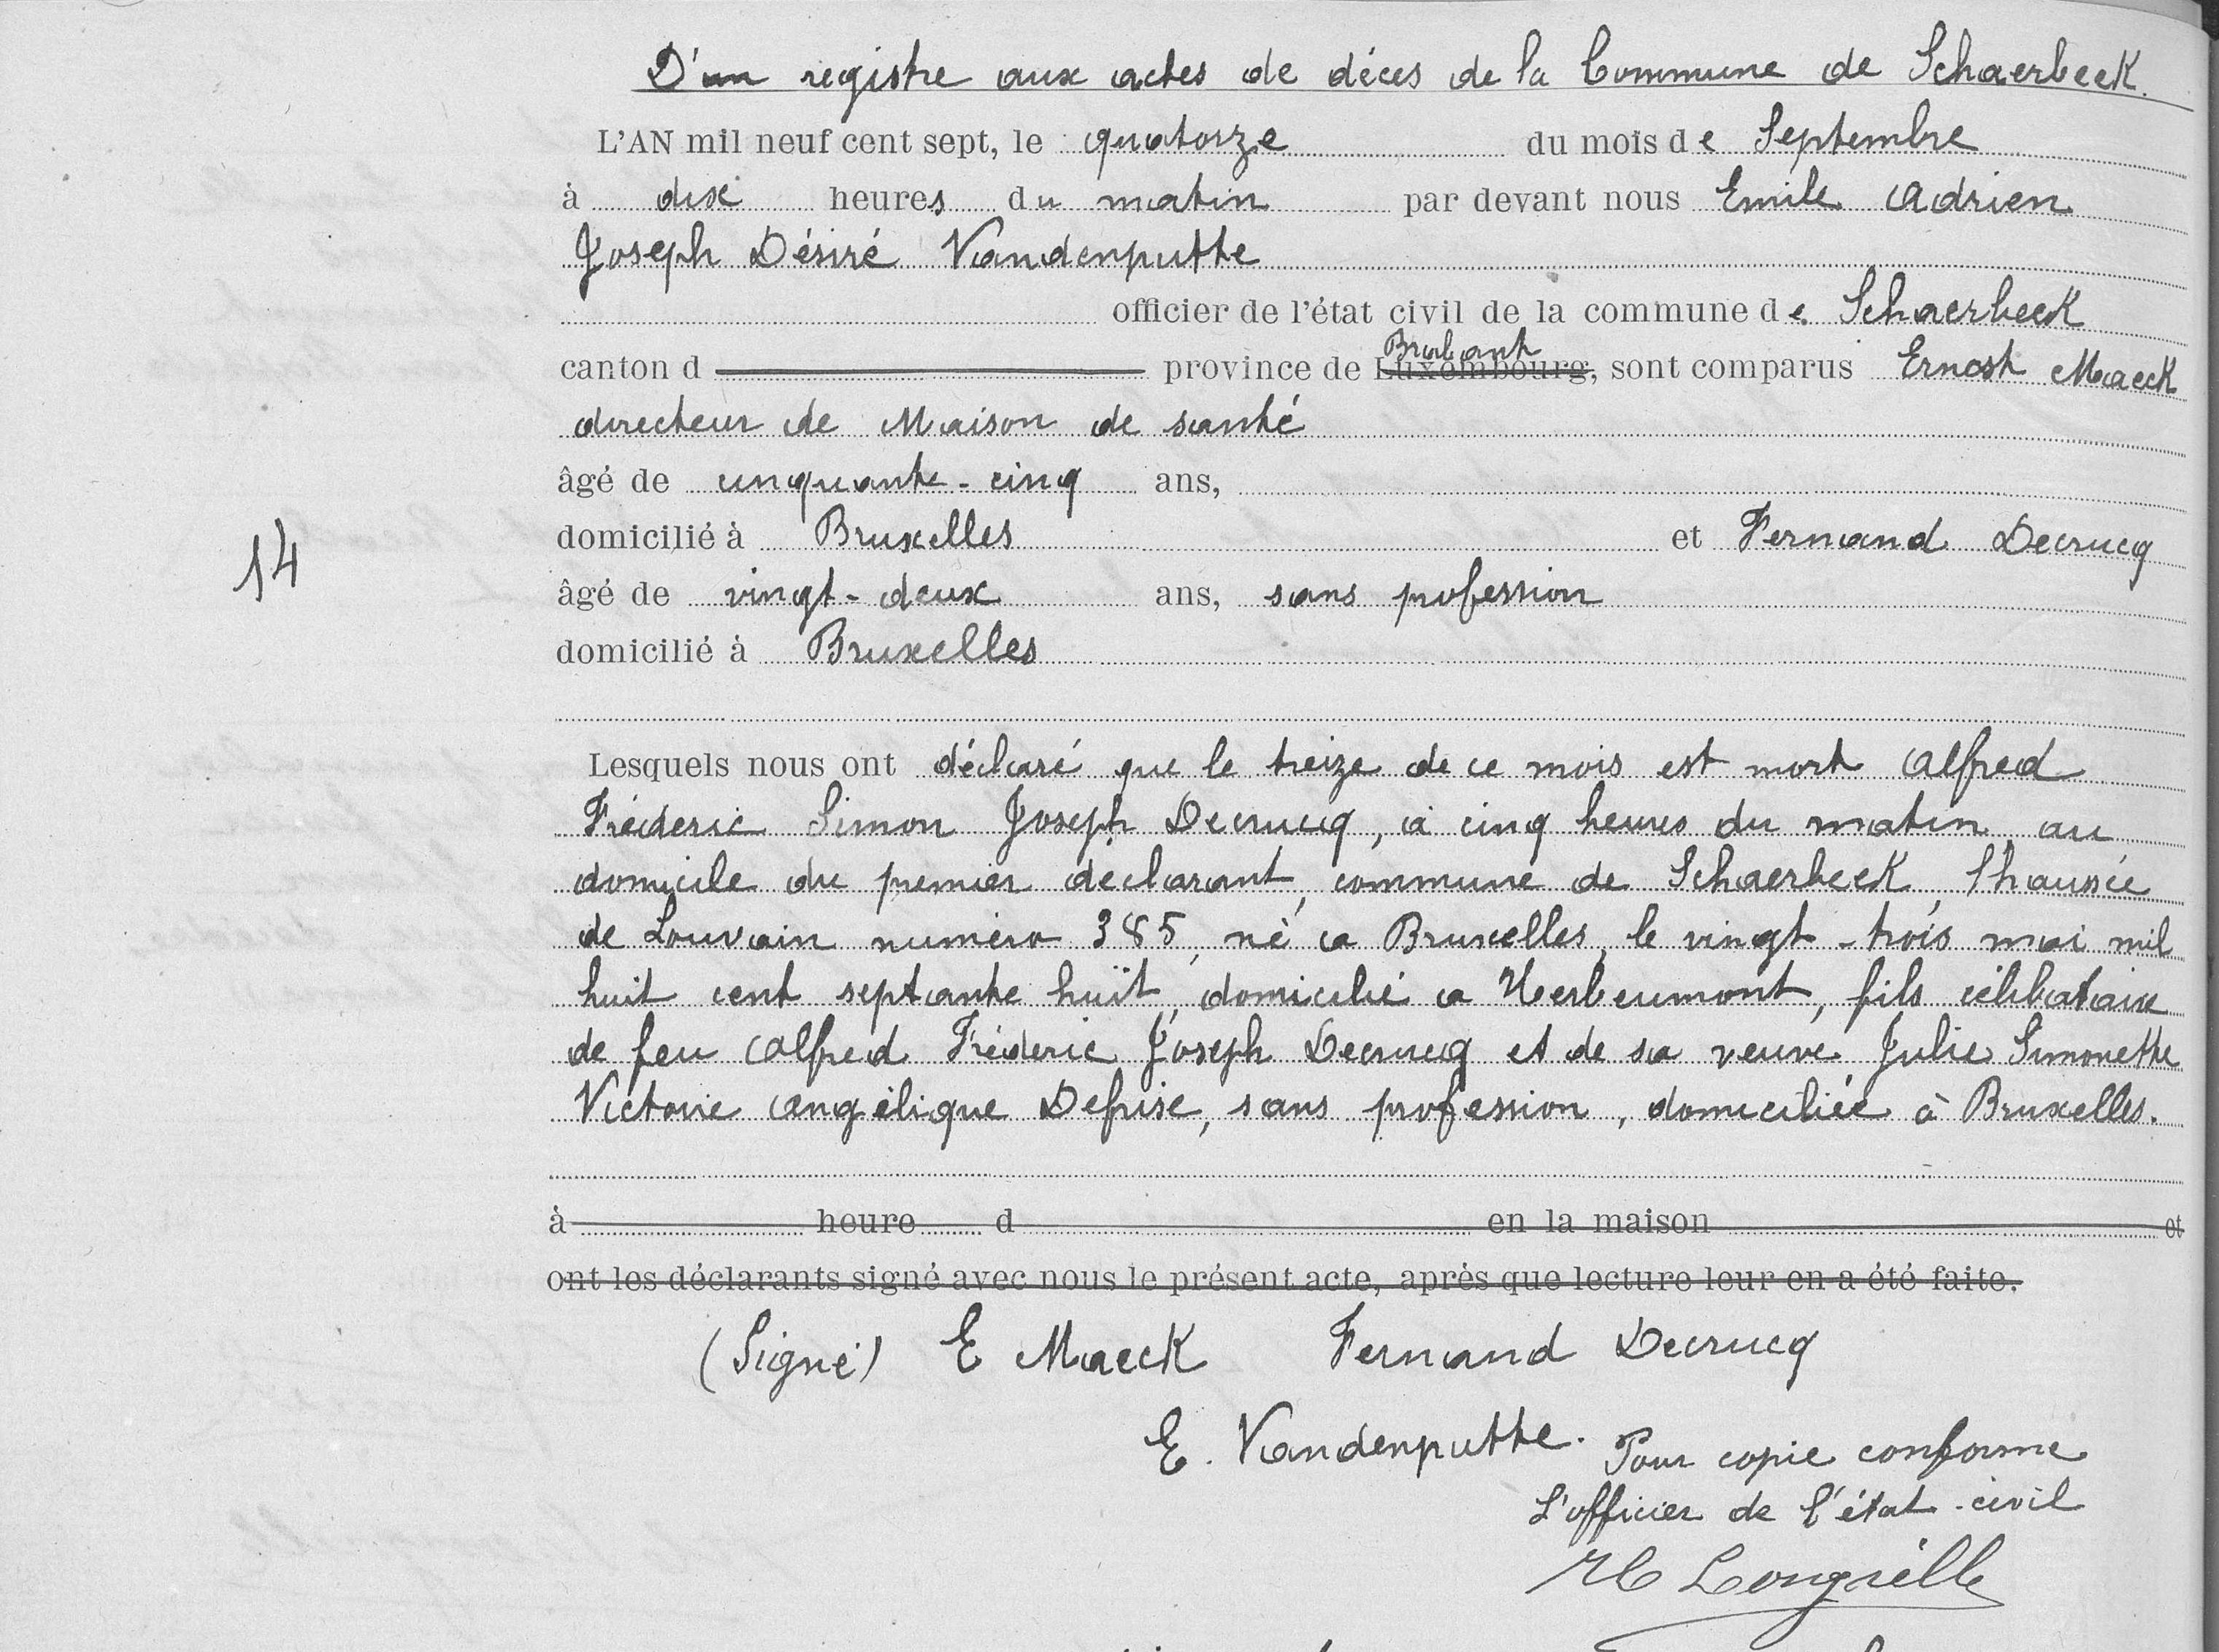 D'un registre aux actes de déces de la Commune de Schaerbeek.
L'AN mil neuf cent sept, le quatorze du mois de Septembre
à dix heures du matin par devant nous Emile Adrien
Joseph Désiré Vandenputte
officier de l'état civil de la commune de Schaerbeek
Brabant
canton d province de Luxembourg, sont comparus Ernest Maeck
directeur de Maison de santé
âgé de cinquante-cinq ans,
domicilié à Bruxelles et Fernand Decrucq
14
âgé de vingt-deux ans, sans profession
domicilié à Bruxelles
Lesquels nous ont déclaré que le treize de ce mois est mort Alfred
Fréderic Simon Joseph Decrucq, à cinq heures du matin au
domicile du premier déclarant, commune de Schaerbeek, Chaussée
de Louvain numéro 385, né à Bruxelles, le vingt-trois mai mil
huit cent septante huit, domicilié à Herbeumont, fils célibataire
de feu Alfred Fréderic Joseph Decrucq et de sa veuve Julie Simonette
Victorie Angélique Defrise, sans profession, domiciliée à Bruxelles.
à heure d en la maison et
ont les déclarants signé avec nous le présent acte, après que lecture leur en a été faite.
(Signé) E Maeck Fernand Decrucq
E. Vandenputte. Pour copie conforme
L'officier de l'état-civil